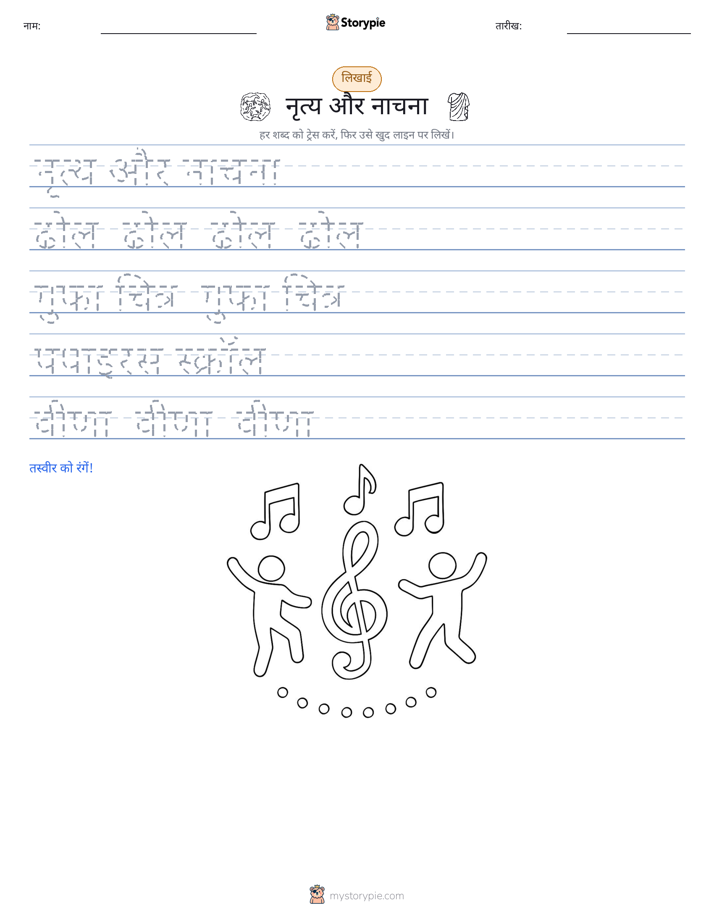 नाम:
Storypie
तारीख:
लिखाई
नृत्य और नाचना
हर शब्द को ट्रेस करें, फिर उसे खुद लाइन पर लिखें।
नृत्य और नाचना
ढोल ढोल ढोल ढोल
गुफा चित्र गुफा चित्र
पपाइरस स्क्रॉल
वीणा वीणा वीणा
तस्वीर को रंगें!
mystorypie.com